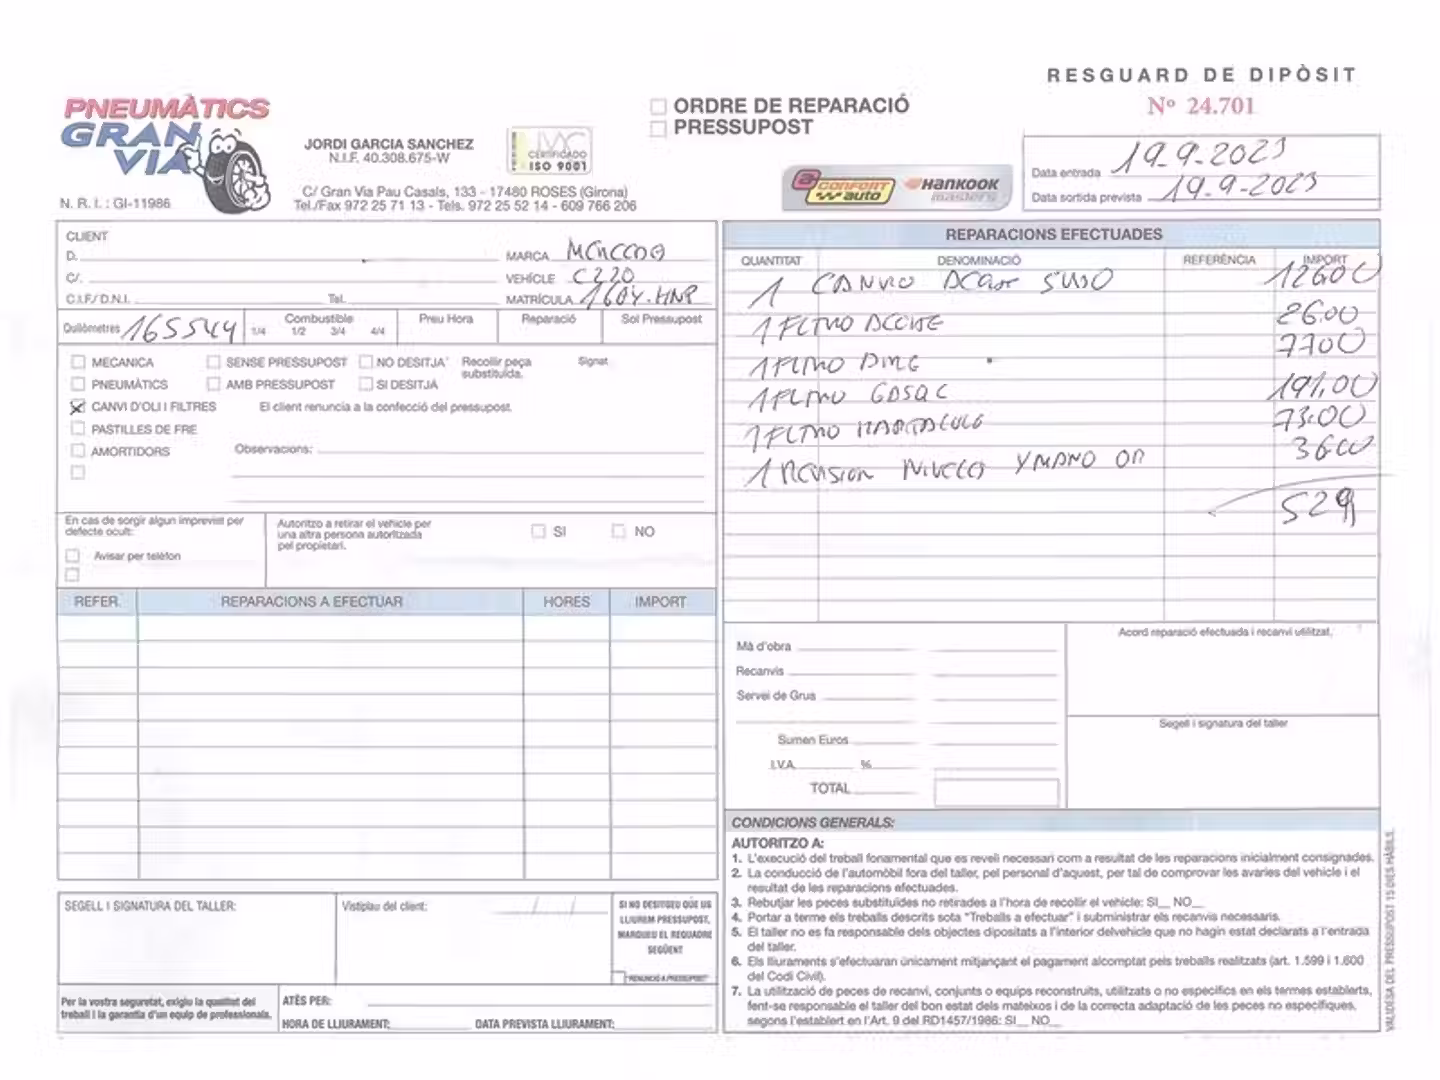 RESGUARD DE DIPÒSIT
Nº 24.701
PNEUMÀTICS
GRAN
VIA
N. R. I. : GI-11986
JORDI GARCIA SANCHEZ
N.I.F. 40.308.675-W
CERTIFICADO
ISO 9001
C/ Gran Via Pau Casals, 133 - 17480 ROSES (Girona)
Tel./Fax 972 25 71 13 - Tels. 972 25 52 14 - 609 766 206
ORDRE DE REPARACIÓ
PRESSUPOST
CONFORT auto
HANKOOK masters
Data entrada 19-9-2023
Data sortida prevista 19-9-2023
CLIENT
D.
MARCA
C/.
VEHÍCLE C220
C.I.F./D.N.I. Tel. MATRÍCULA 1604-HNP
Quilòmetres 165544
Combustible
1/4 1/2 3/4 4/4
Preu Hora
Reparació
Sol Pressupost
MECANICA
SENSE PRESSUPOST
NO DESITJA
Recollir peça substituïda.
Signat
PNEUMÀTICS
AMB PRESSUPOST
SI DESITJA
CANVI D'OLI I FILTRES
El client renuncia a la confecció del pressupost.
PASTILLES DE FRE
AMORTIDORS
Observacions:
En cas de sorgir algun imprevist per
defecte ocult:
Avisar per telèfon
Autoritzo a retirar el vehicle per
una altra persona autoritzada
pel propietari.
SI
NO
REFER. REPARACIONS A EFECTUAR HORES IMPORT
SEGELL I SIGNATURA DEL TALLER:
Vistiplau del client:
SI NO DESITGEU QUE US
LLIUREM PRESSUPOST,
MARQUEU EL REQUADRE
SEGÜENT
"RENUNCIO A PRESSUPOST"
Per la vostra seguretat, exigiu la qualitat del
treball i la garantia d'un equip de professionals.
ATÈS PER:
HORA DE LLIURAMENT:
DATA PREVISTA LLIURAMENT:
REPARACIONS EFECTUADES
QUANTITAT DENOMINACIÓ REFERÈNCIA IMPORT
1 5W30 126.00
1 26.00
1 77.00
1 191,00
1 73.00
1 REVISION NIVELES Y MANO OB 36.00
529
Mà d'obra
Recanvis
Servei de Grua
Sumen Euros
I.V.A. %
TOTAL
Acord reparació efectuada i recanvi utilitzat,
Segell i signatura del taller
CONDICIONS GENERALS:
AUTORITZO A:
1. L'execució del treball fonamental que es reveli necessari com a resultat de les reparacions inicialment consignades.
2. La conducció de l'automòbil fora del taller, pel personal d'aquest, per tal de comprovar les avaries del vehicle i el
resultat de les reparacions efectuades.
3. Rebutjar les peces substituïdes no retirades a l'hora de recollir el vehicle: SI__ NO__
4. Portar a terme els treballs descrits sota "Treballs a efectuar" i subministrar els recanvis necessaris.
5. El taller no es fa responsable dels objectes dipositats a l'interior delvehicle que no hagin estat declarats a l'entrada
del taller.
6. Els lliuraments s'efectuaran únicament mitjançant el pagament alcomptat pels treballs realitzats (art. 1.599 i 1.600
del Codi Civil).
7. La utilització de peces de recanvi, conjunts o equips reconstruïts, utilitzats o no específics en els termes establerts,
fent-se responsable el taller del bon estat dels mateixos i de la correcta adaptació de les peces no específiques,
segons l'establert en l'Art. 9 del RD1457/1986: SI__ NO__
VALIDESA DEL PRESSUPOST 15 DIES HÀBILS.